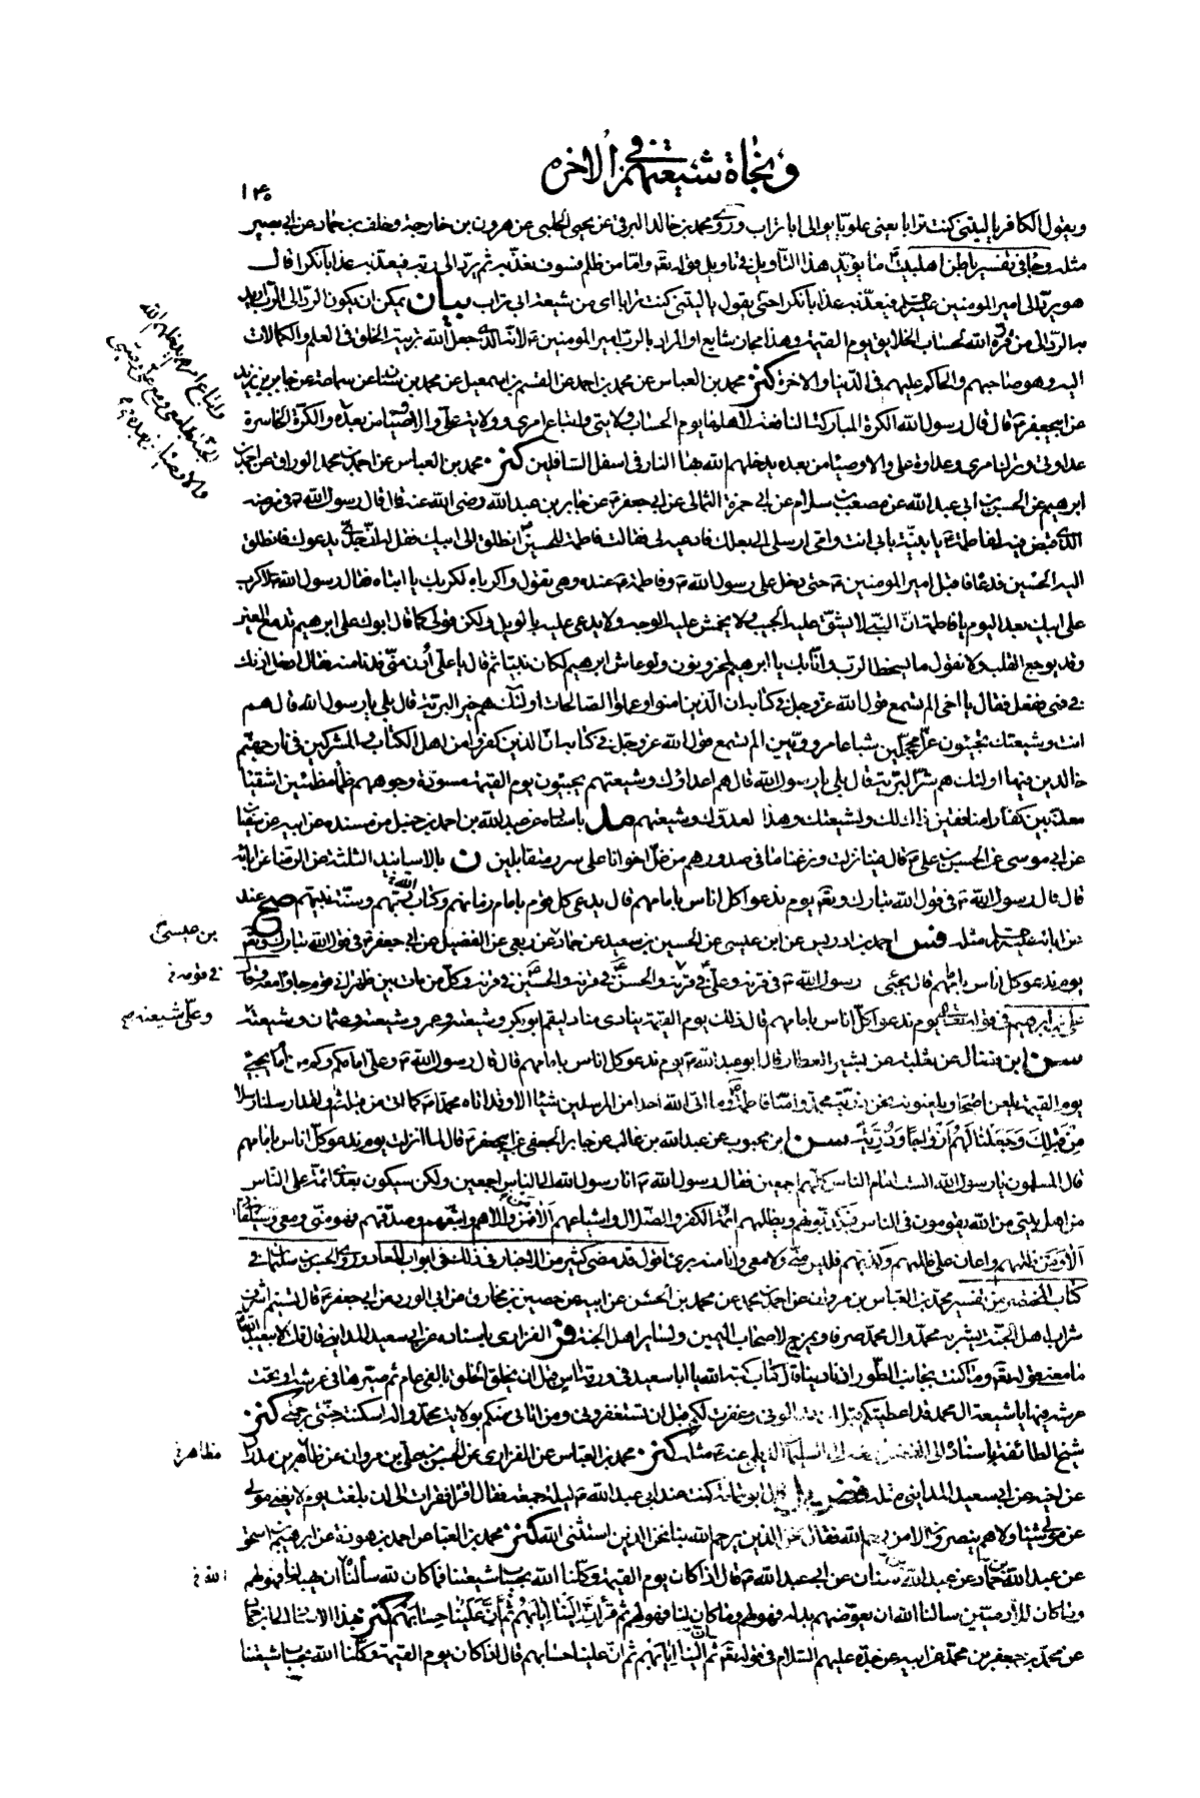 و نجاة شيعتهم في الآخرة
١٤٥
ويقول الكافر يا ليتني كنت ترابا يعني علويا يوالي ابا تراب وروى محمد بن خالد البرقي عن يحيى الحلبي عن هرون بن خارجة وخلف بن حماد عن ابي بصير
مثله وجاء في تفسير باطن اهل البيت ما يؤيد هذا التأويل في تأويل قوله تعالى واما من ظلم فسوف نعذبه ثم يرد الى ربه فيعذبه عذابا نكرا قال
هو يرد الى امير المومنين عليه السلام فيعذبه عذابا نكرا حتى يقول يا ليتني كنت ترابا اي من شيعة ابي تراب بيان يمكن ان يكون الرد الى الرب اريد
به الرد الى من قرره الله لحساب الخلايق يوم القيمة وهذا مجاز شايع او المراد بالرب امير المومنين ع لانه الذي جعل الله تربية الخلق في العلم والكمالات
اليه وهو صاحبهم والحاكم عليهم في الدنيا والآخرة كنز محمد بن العباس عن محمد بن احمد عن القسم بن اسمعيل عن محمد بن سنان عن سماعة عن جابر بن يزيد
عن ابي جعفر ع قال قال رسول الله الكرة المباركة النافعة لاهلها يوم الحساب ولايتي واتباع امري وولاية علي والاوصياء من بعده والكرة الخاسرة
عداوتي وترك امري وعداوة علي والاوصياء من بعده يدخلهم الله بها النار في اسفل السافلين كنز محمد بن العباس عن احمد بن محمد الوراق عن احمد بن
ابرهيم عن الحسين بن ابي عبد الله عن مصعب بن سلام عن ابي حمزة الثمالي عن ابي جعفر ع عن جابر بن عبد الله رضي الله عنه قال قال رسول الله ص في مرضه
الذي قبض فيه لفاطمة ع يا بنية بابي انت وامي ارسلي الى بعلك فادعيه لي فقالت فاطمة للحسن انطلق الى ابيك فقل له ان جدي يدعوك فانطلق
اليه الحسين فدعاه فاقبل امير المومنين ع حتى دخل على رسول الله ص وفاطمة ع عنده وهي تقول واكرباه لكربك يا ابتاه فقال رسول الله ص لا كرب
على ابيك بعد اليوم يا فاطمة ان النبي لا يشق عليه الجيب ولا يخمش عليه الوجه ولا يدعى عليه بالويل ولكن قولي كما قال ابوك على ابرهيم تدمع العين
وقد يوجع القلب ولا نقول ما يسخط الرب وانا بك يا ابرهيم لمحزونون ولو عاش ابرهيم لكان نبيا ثم قال يا علي ادن مني فدنا منه فقال ادخل اذنك
في فمي ففعل فقال يا اخي الم تسمع قول الله عز وجل في كتابه ان الذين امنوا وعملوا الصالحات اولئك هم خير البرية قال بلى يا رسول الله قال هم
انت وشيعتك تجيئون غرا محجلين شباعا مرويين الم تسمع قول الله عز وجل في كتابه ان الذين كفروا من اهل الكتاب والمشركين في نار جهنم
خالدين فيها اولئك هم شر البرية قال بلى يا رسول الله قال هم اعداؤك وشيعتهم يجيئون يوم القيمة مسودة وجوههم ظماء مظمئين اشقياء
معذبين كفارا منافقين ذلك لك ولشيعتك وهذا لعدوك وشيعتهم مد باسناده عن عبد الله بن احمد بن حنبل من مسنده عن ابيه عن سفيان
عن ابي موسى عن الحسن بن علي ع قال فينا نزلت ونزعنا ما في صدورهم من غل اخوانا على سرر متقابلين ن بالاسانيد الثلثة عن الرضا عن ابائه
قال قال رسول الله ص في قول الله تبارك وتعالى يوم ندعوا كل اناس بامامهم قال يدعى كل قوم بامام زمانهم وكتاب الله ربهم وسنة نبيهم صح عند
عن ابائه عليهم السلام مثله فس احمد بن ادريس عن ابن عيسى عن الحسين بن سعيد عن حماد عن ربعي عن الفضيل عن ابي جعفر ع في قول الله تبارك وتعالى
يوم ندعو كل اناس بامامهم قال يجيئ رسول الله ص في قرنه وعلي في قرنه والحسن في قرنه والحسين في قرنه وكل من مات بين ظهراني قوم جاؤا معه وقال
علي بن ابرهيم في قوله تعالى يوم ندعوا كل اناس بامامهم قال ذلك يوم القيمة ينادي مناد ليقم ابو بكر وشيعته وعمر وشيعته وعثمان وشيعته
سن ابن فضال عن ثعلبة عن بشير العطار قال ابو عبد الله ع يوم ندعو كل اناس بامامهم قال قال رسول الله ص وعلي امامكم وكم من امام يجيئ
يوم القيمة يلعن اصحابه ويلعنونه نحن ذرية محمد وامنا فاطمة وما اتى الله احدا من المرسلين شيئا الا وقد اتاه محمدا ص كما اتى من قبله ثم تلا ولقد ارسلنا رسلا
من قبلك وجعلنا لهم ازواجا وذرية سن ابن محبوب عن عبد الله بن غالب عن جابر الجعفي عن ابي جعفر ع قال لما انزلت يوم ندعو كل اناس بامامهم
قال المسلمون يا رسول الله الست امام الناس كلهم اجمعين فقال رسول الله ص انا رسول الله الى الناس اجمعين ولكن سيكون بعدي ائمة على الناس
من اهل بيتي من الله يقومون في الناس فيكذبونهم ويظلمهم ائمة الكفر والضلال واشياعهم الا فمن والاهم واتبعهم وصدقهم فهو مني ومعي وسيلقاني
الا ومن ظلمهم واعان على ظلمهم وكذبهم فليس مني ولا معي وانا منه بري اقول قد مضى كثير من الاخبار في ذلك في ابواب المعاد وروى الحسن بن سليمان في
كتاب المحتضر من تفسير محمد بن العباس بن مروان عن احمد بن محمد عن محمد بن الحسن عن ابيه عن حصين بن مخارق عن ابي الورد عن ابي جعفر ع قال تسنيم اشرف
شراب اهل الجنة يشربه محمد وال محمد صرفا ويمزج لاصحاب اليمين ولساير اهل الجنة فر الفزاري باسناده عن ابي سعيد المدايني قال قلت لابي عبد الله ع
ما معنى قوله تعالى وما كنت بجانب الطور اذ نادينا قال كتاب كتبه الله يا ابا سعيد في ورقة اس قبل ان يخلق الخلق بالفي عام ثم صيرها في عرشه او تحت
عرشه فيها يا شيعة ال محمد قد اعطيتكم قبل ان تسألوني وغفرت لكم قبل ان تستغفروني ومن اتاني منكم بولاية محمد واله اسكنته جنتي برحمتي كنز
شيخ الطائفة باسناده الى الفضل بن شاذان الديلمي عنه ع مثله كنز محمد بن العباس عن الفزاري عن الحسن بن علي بن مروان عن طاهر بن مدرار
عن اخيه عن ابي سعيد المدايني مثله فض قال ابو اسامة كنت عند ابي عبد الله ع ليلة جمعة فقال اقرأ فقرأت الى ان بلغت يوم لا يغني مولى
عن مولى شيئا ولا هم ينصرون الا من رحم الله فقال نحن الذين يرحم الله بنا نحن الذين استثنى الله كنز محمد بن العباس عن احمد بن هوذة عن ابرهيم بن اسحق
عن عبد الله بن حماد عن عبد الله بن سنان عن ابي عبد الله ع قال اذا كان يوم القيمة وكلنا الله بحساب شيعتنا فما كان لله سألنا ان يهبه لنا فهو لهم
وما كان للادميين سالنا الله ان يعوضهم بدله فهو لهم وما كان لنا فهو لهم ثم قرأ ان الينا ايابهم ثم ان علينا حسابهم كنز بهذا الاسناد الى ابن حماد
عن محمد بن جعفر بن محمد عن ابيه عن جده عليهم السلام في قوله تعالى ان الينا ايابهم ثم ان علينا حسابهم قال اذا كان يوم القيمة وكلنا الله بحساب شيعتنا
بن عيسى
في قومه
وعلي شيعته
مظاهر
الله